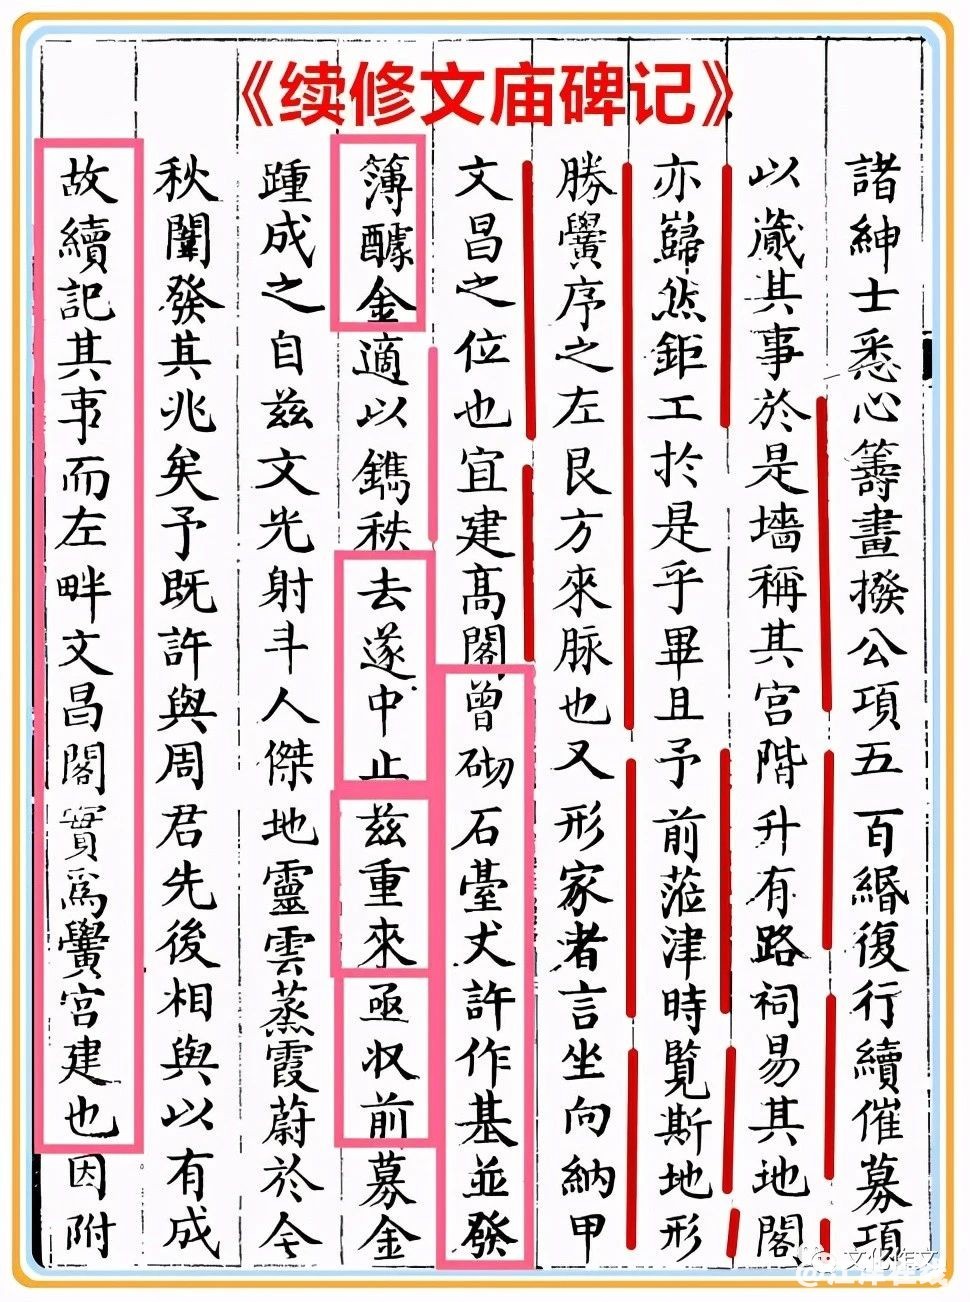 《续修文庙碑记》
諸紳士悉心籌畫撥公項五百緡復行續催募項
以蕆其事於是墻稱其宫階升有路祠易其地閣
亦巋然鉅工於是乎畢且予前蒞津時覧斯地形
勝黌序之左艮方來脉也又形家者言坐向納甲
文昌之位也宜建髙閣曾砌石臺丈許作基並發
簿醵金適以鐫秩去遂中止兹重來亟収前募金
踵成之自兹文光射斗人傑地靈雲蒸霞蔚於今
秋闈發其兆矣予既許與周君先後相與以有成
故續記其事而左畔文昌閣實爲黌宫建也因附